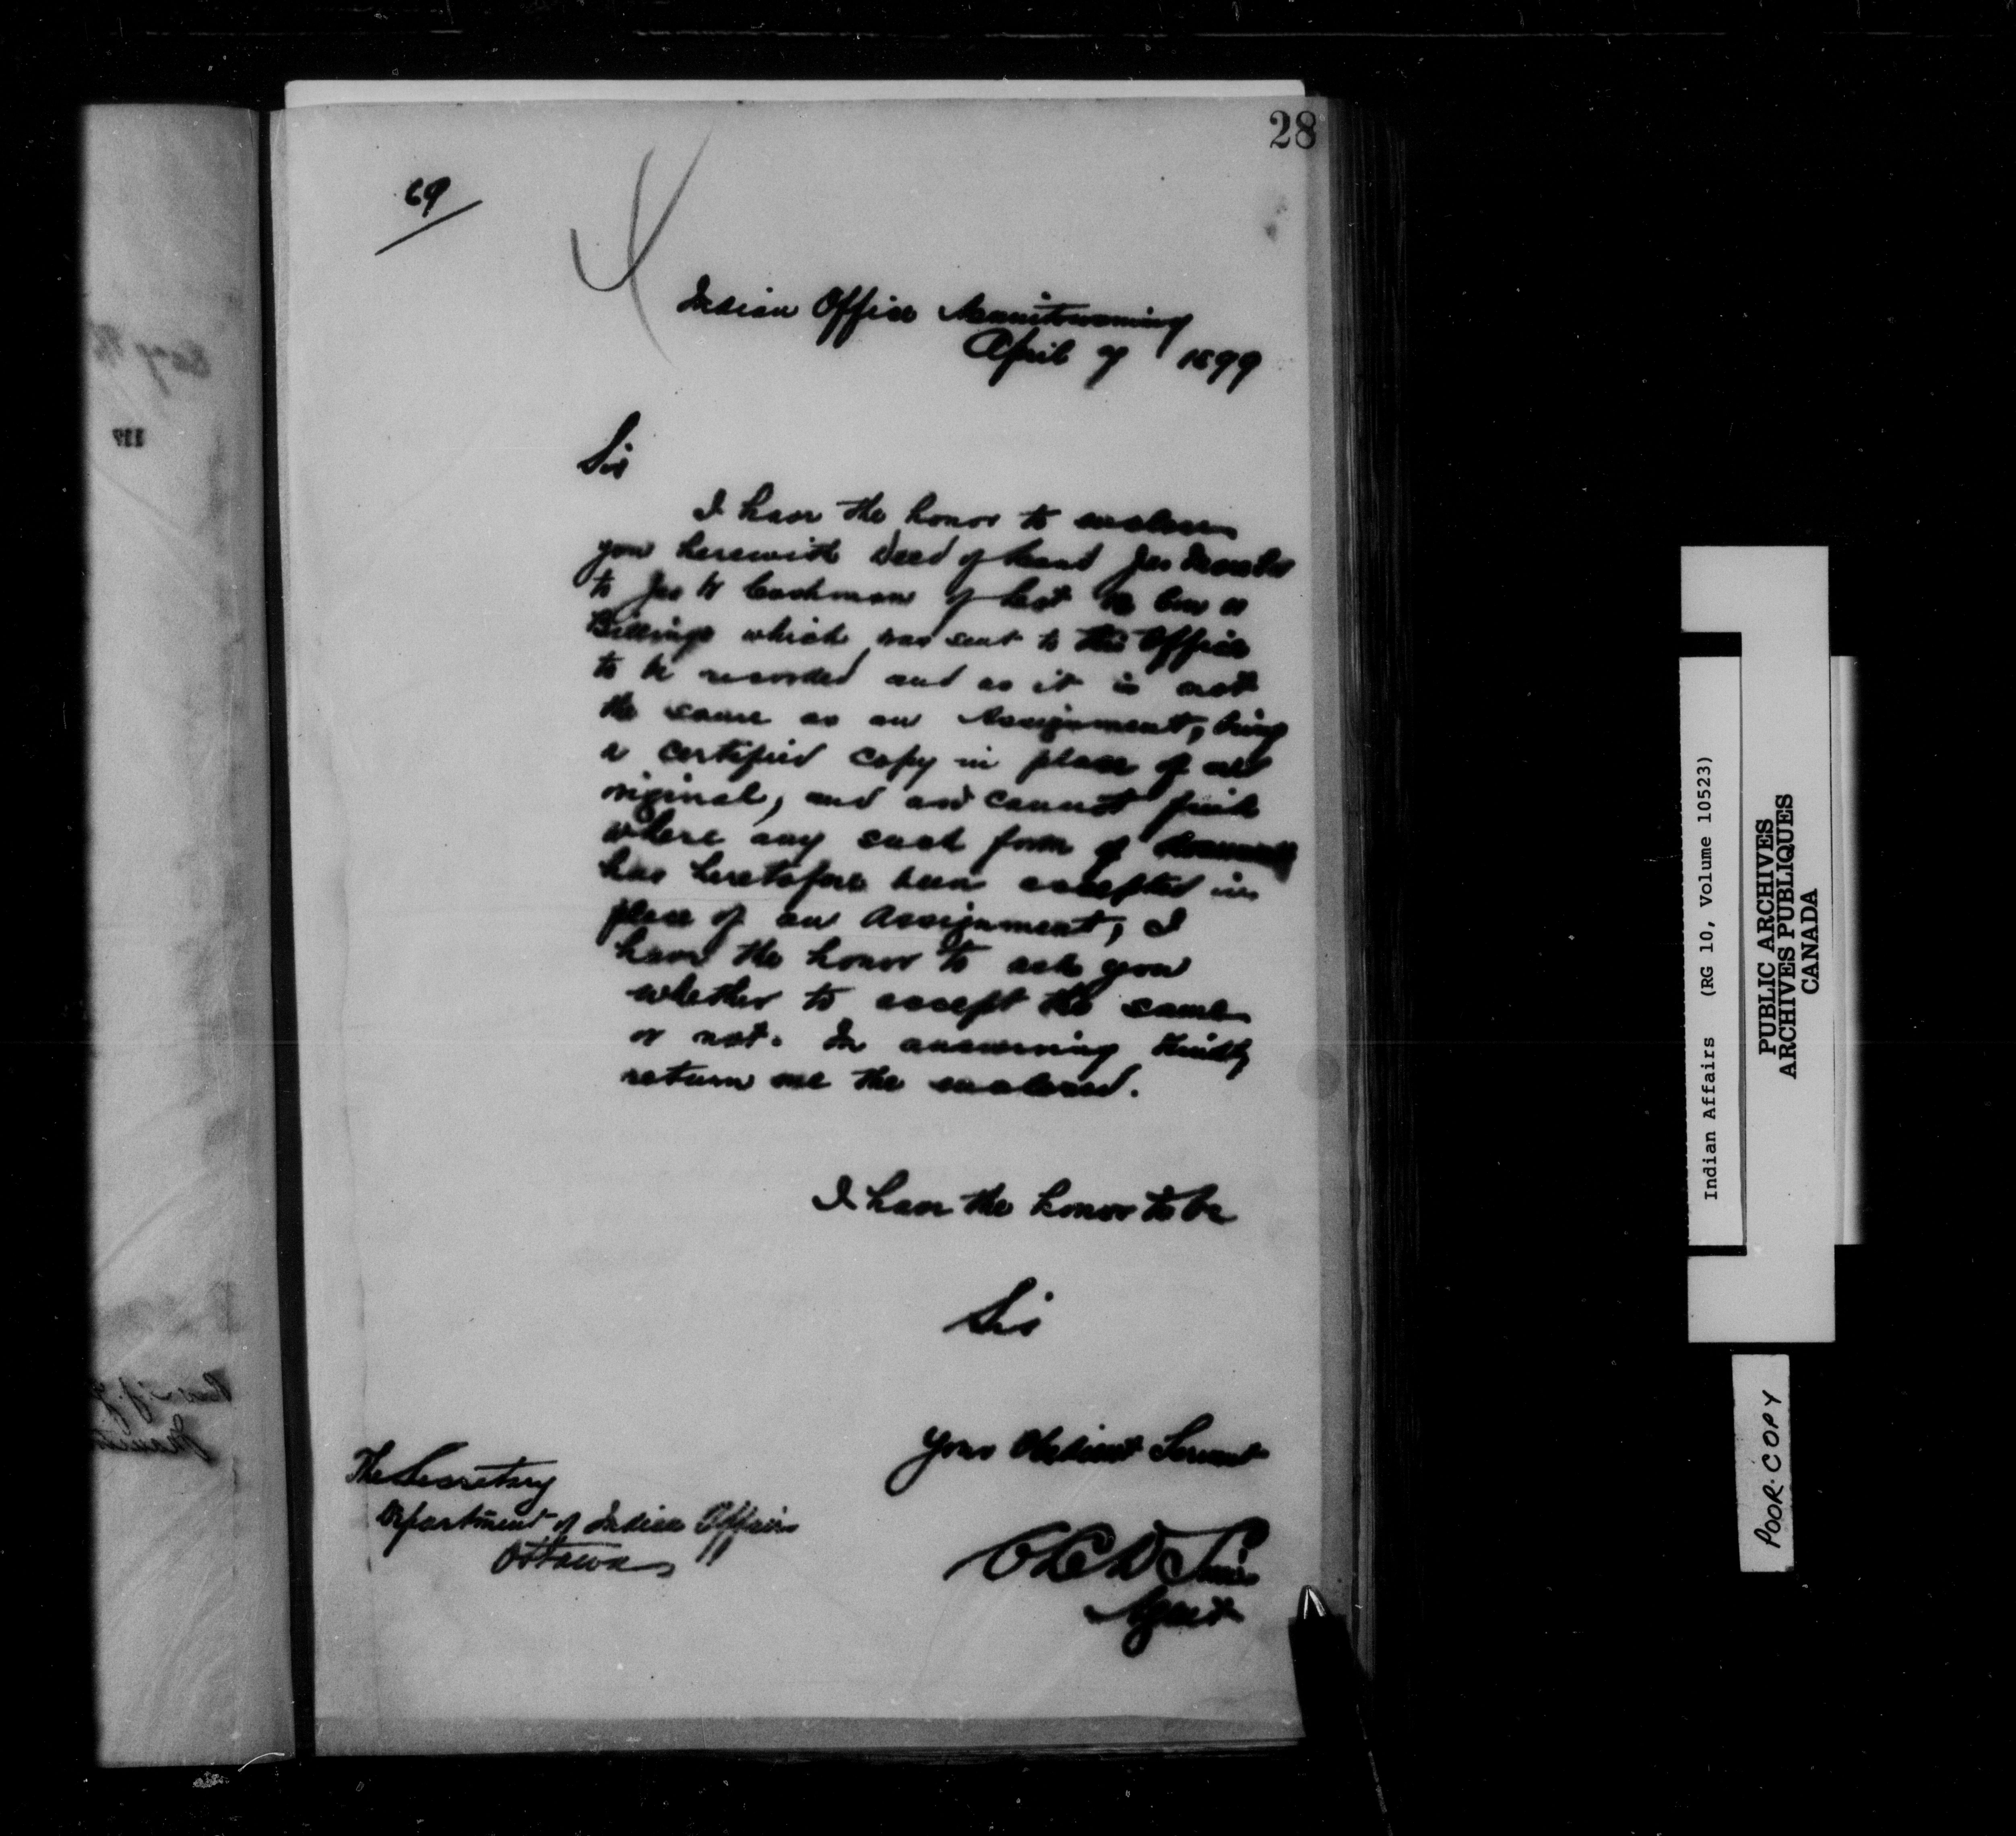 28
69
Indian Office Manitowaning
April 7 1899
Sir
I have the honor to enclose
you herewith Deed of Land Jas
to Jas W Cushman of Lot
Billings which was sent to this Office
to be recorded and as it is not
the same as an Assignment, being
a certified copy in place of an
original, and as I cannot find
where any such form of
has heretofore been accepted in
place of an Assignment, I
have the honor to ask you
whether to accept the same
or not. In answering kindly
return me the enclosed.
I have the honor to be
Sir
Your Obedient Servant
The Secretary
Department of Indian Affairs
Ottawa
Agent
Indian Affairs (RG 10, Volume 10523)
PUBLIC ARCHIVES
ARCHIVES PUBLIQUES
CANADA
POOR COPY